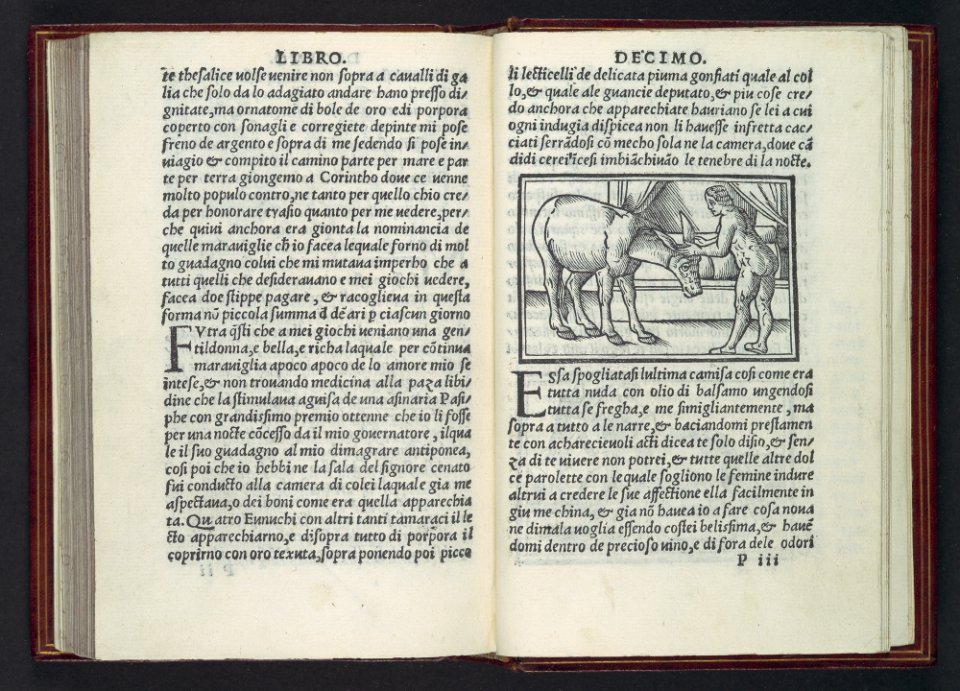 LIBRO.
te thesalice volse venire non sopra a cavalli di ga
lia che solo da lo adagiato andare hano presso di⸗
gnitate, ma ornatome di bole de oro e di porpora
coperto con sonagli e corregiete depinte mi pose
freno de argento e sopra di me sedendo si pose in⸗
uiagio & compito il camino parte per mare e par
te per terra giongemo a Corintho doue ce uenne
molto populo contro, ne tanto per quello chio cre⸗
da per honorare tyasio quanto per me uedere, per⸗
che quiui anchora era gionta la nominancia de
quelle marauiglie ch̄ io facea lequale forno di mol
to guadagno colui che mi mutaua imperho che a
tutti quelli che desiderauano e mei giochi uedere,
facea doe stippe pagare, & racoglieua in questa
forma nō piccola summa d̄ dēari p ciascun giorno
FVtra q̄sti che a mei giochi ueniano una gen⸗
tildonna, e bella, e richa laquale per cōtinua
marauiglia apoco apoco de lo amore mio se
intese, & non trouando medicina alla paza libi⸗
dine che la stimulaua aguisa de una asinaria Pasi⸗
phe con grandissimo premio ottenne che io li fosse
per una nocte cōcesso da il mio gouernatore, ilqua
le il suo guadagno al mio dimagrare antiponea,
cosi poi che io hebbi ne la sala del signore cenato
fui conducto alla camera di colei laquale gia me
aspectaua, o dei boni come era quella apparechia
ta. Quatro Eunuchi con altri tanti tamaraci il le
cto apparechiarno, e disopra tutto di porpora il
coprirno con oro texuta, sopra ponendo poi picco
DECIMO.
li lecticelli de delicata piuma gonfiati quale al col
lo, & quale ale guancie deputato, & piu cose cre⸗
do anchora che apparechiate hauriano se lei a cui
ogni indugia dispicea non li hauesse infretta cac⸗
ciati serrādosi cō mecho sola ne la camera, doue cā
didi cerei icesi imbiāchiuāo le tenebre di la nocte.
ESsa spogliatasi lultima camisa cosi come era
tutta nuda con olio di balsamo ungendosi
tutta se fregha, e me simigliantemente, ma
sopra a tutto a le narre, & baciandomi prestamen
te con acharecieuoli acti dicea te solo disio, & sen⸗
za di te uiuere non potrei, & tutte quelle altre dol
ce parolette con lequale sogliono le femine indure
altrui a credere le sue affectione ella facilmente in
giu me china, & gia nō hauea io a fare cosa noua
ne dimala uoglia essendo costei belissima, & hauē
domi dentro de precioso uino, e di fora dele odori
P iii